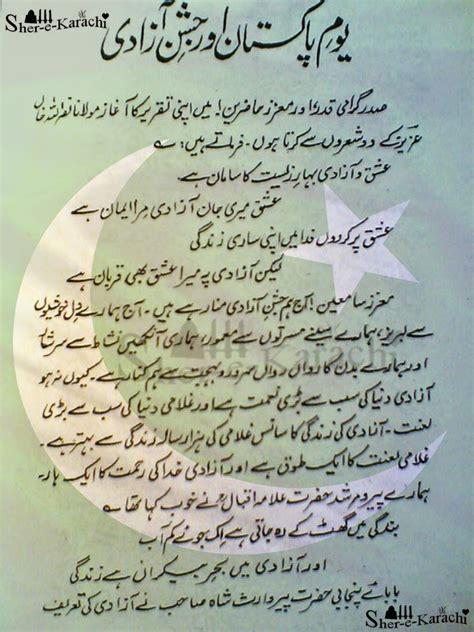 Sher-e-Karachi
یومِ پاکستان اور جشنِ آزادی
صدرِ گرامی قدر! اور معزز حاضرین! میں اپنی تقریر کا آغاز مولانا نصر اللہ خاں
عزیزؔ کے دو شعروں سے کرتا ہوں۔ فرماتے ہیں: ؎
عشق و آزادی بہارِ زیست کا سامان ہے
عشق میری جان آزادی مرا ایمان ہے
عشق پر کردوں فدا میں اپنی ساری زندگی
لیکن آزادی پہ میرا عشق بھی قربان ہے
معزز سامعین! آج ہم جشنِ آزادی منا رہے ہیں۔ آج ہمارے دل خوشیوں
سے لبریز، ہمارے سینے مسرتوں سے معمور، ہماری آنکھیں نشاط سے سرشار
اور ہمارے بدن کا رواں رواں سرور و بہجت سے ہم کنار ہے۔ کیوں نہ ہو
آزادی دنیا کی سب سے بڑی نعمت ہے اور غلامی دنیا کی سب سے بڑی
لعنت۔ آزادی کی زندگی کا سانس غلامی کی ہزار سالہ زندگی سے بہتر ہے۔
غلامی لعنت کا ایک طوق ہے اور آزادی خدا کی رحمت کا ایک ہار۔
ہمارے پیر و مرشد حضرت علامہ اقبالؒ نے خوب کہا تھا ؎
بندگی میں گھٹ کے رہ جاتی ہے اک جوئے کم آب
اور آزادی میں بحرِ بیکراں ہے زندگی
بابائے پنجابی حضرت پیر وارث شاہ صاحب نے آزادی کی تعریف
Sher-e-Karachi
Sher-e-Karachi